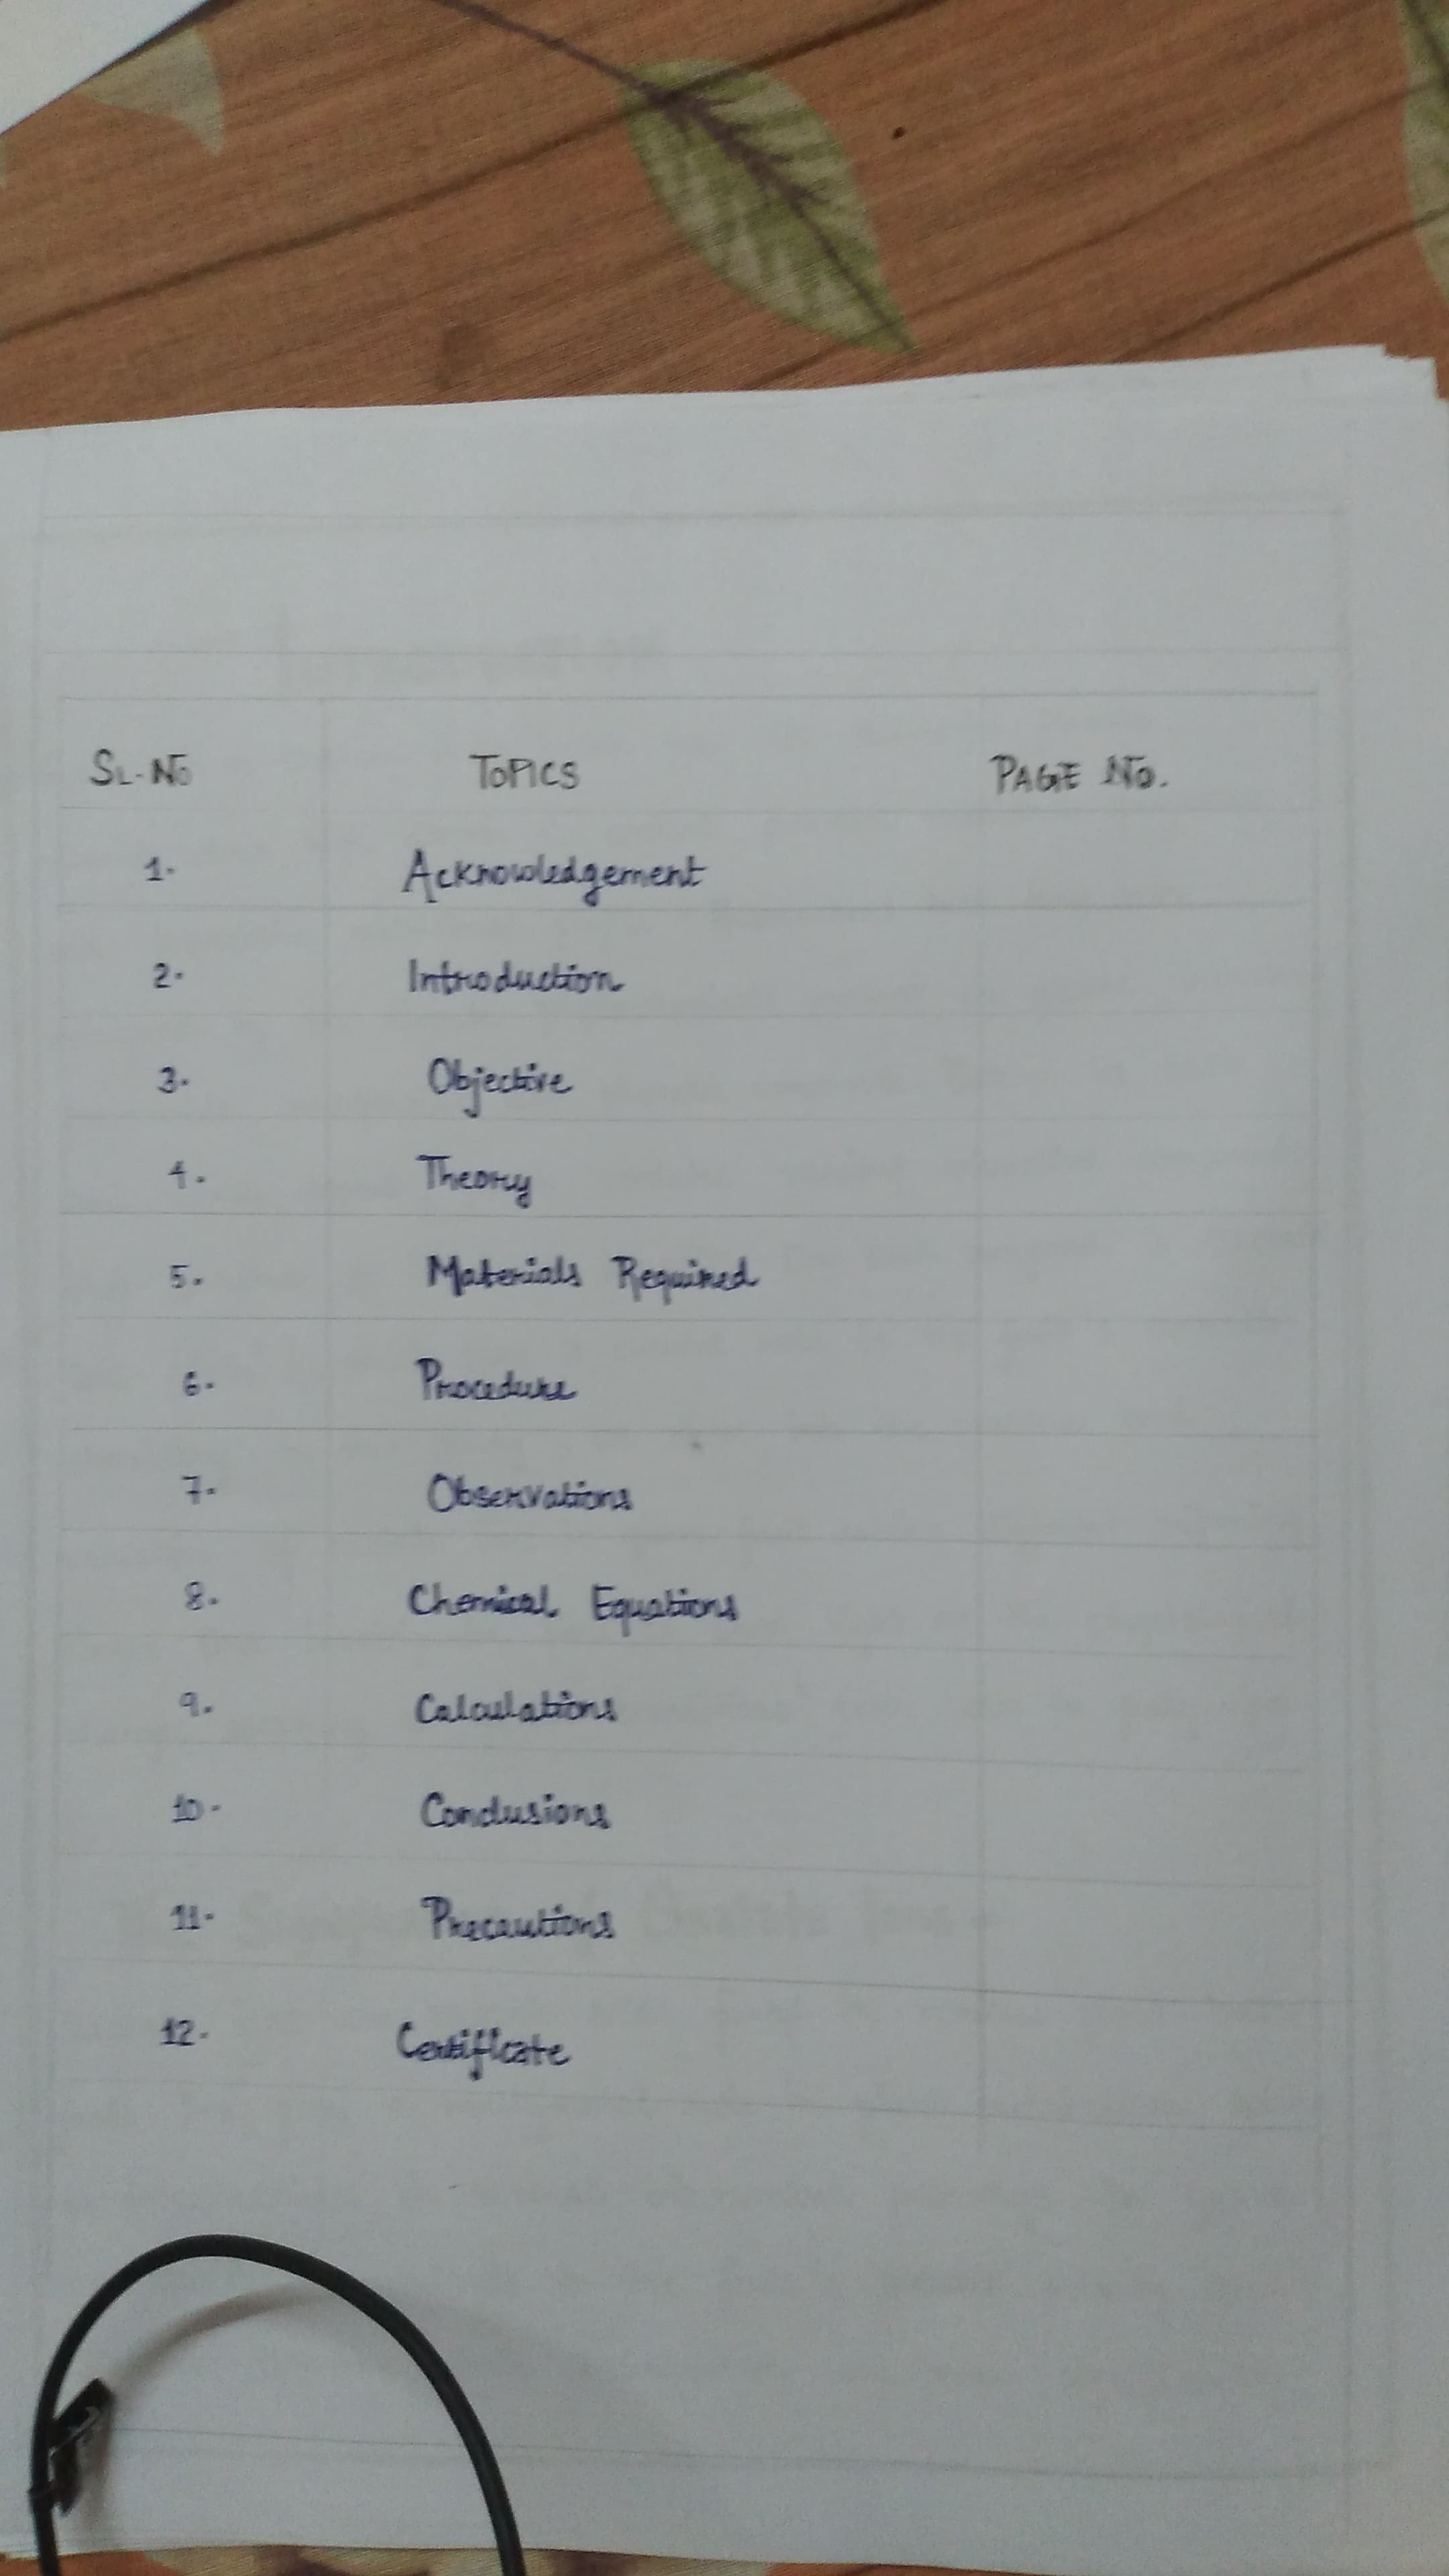 SL. NO TOPICS PAGE NO.
1. Acknowledgement
2. Introduction
3. Objective
4. Theory
5. Materials Required
6. Procedure
7. Observations
8. Chemical Equations
9. Calculations
10. Conclusions
11. Precautions
12. Certificate